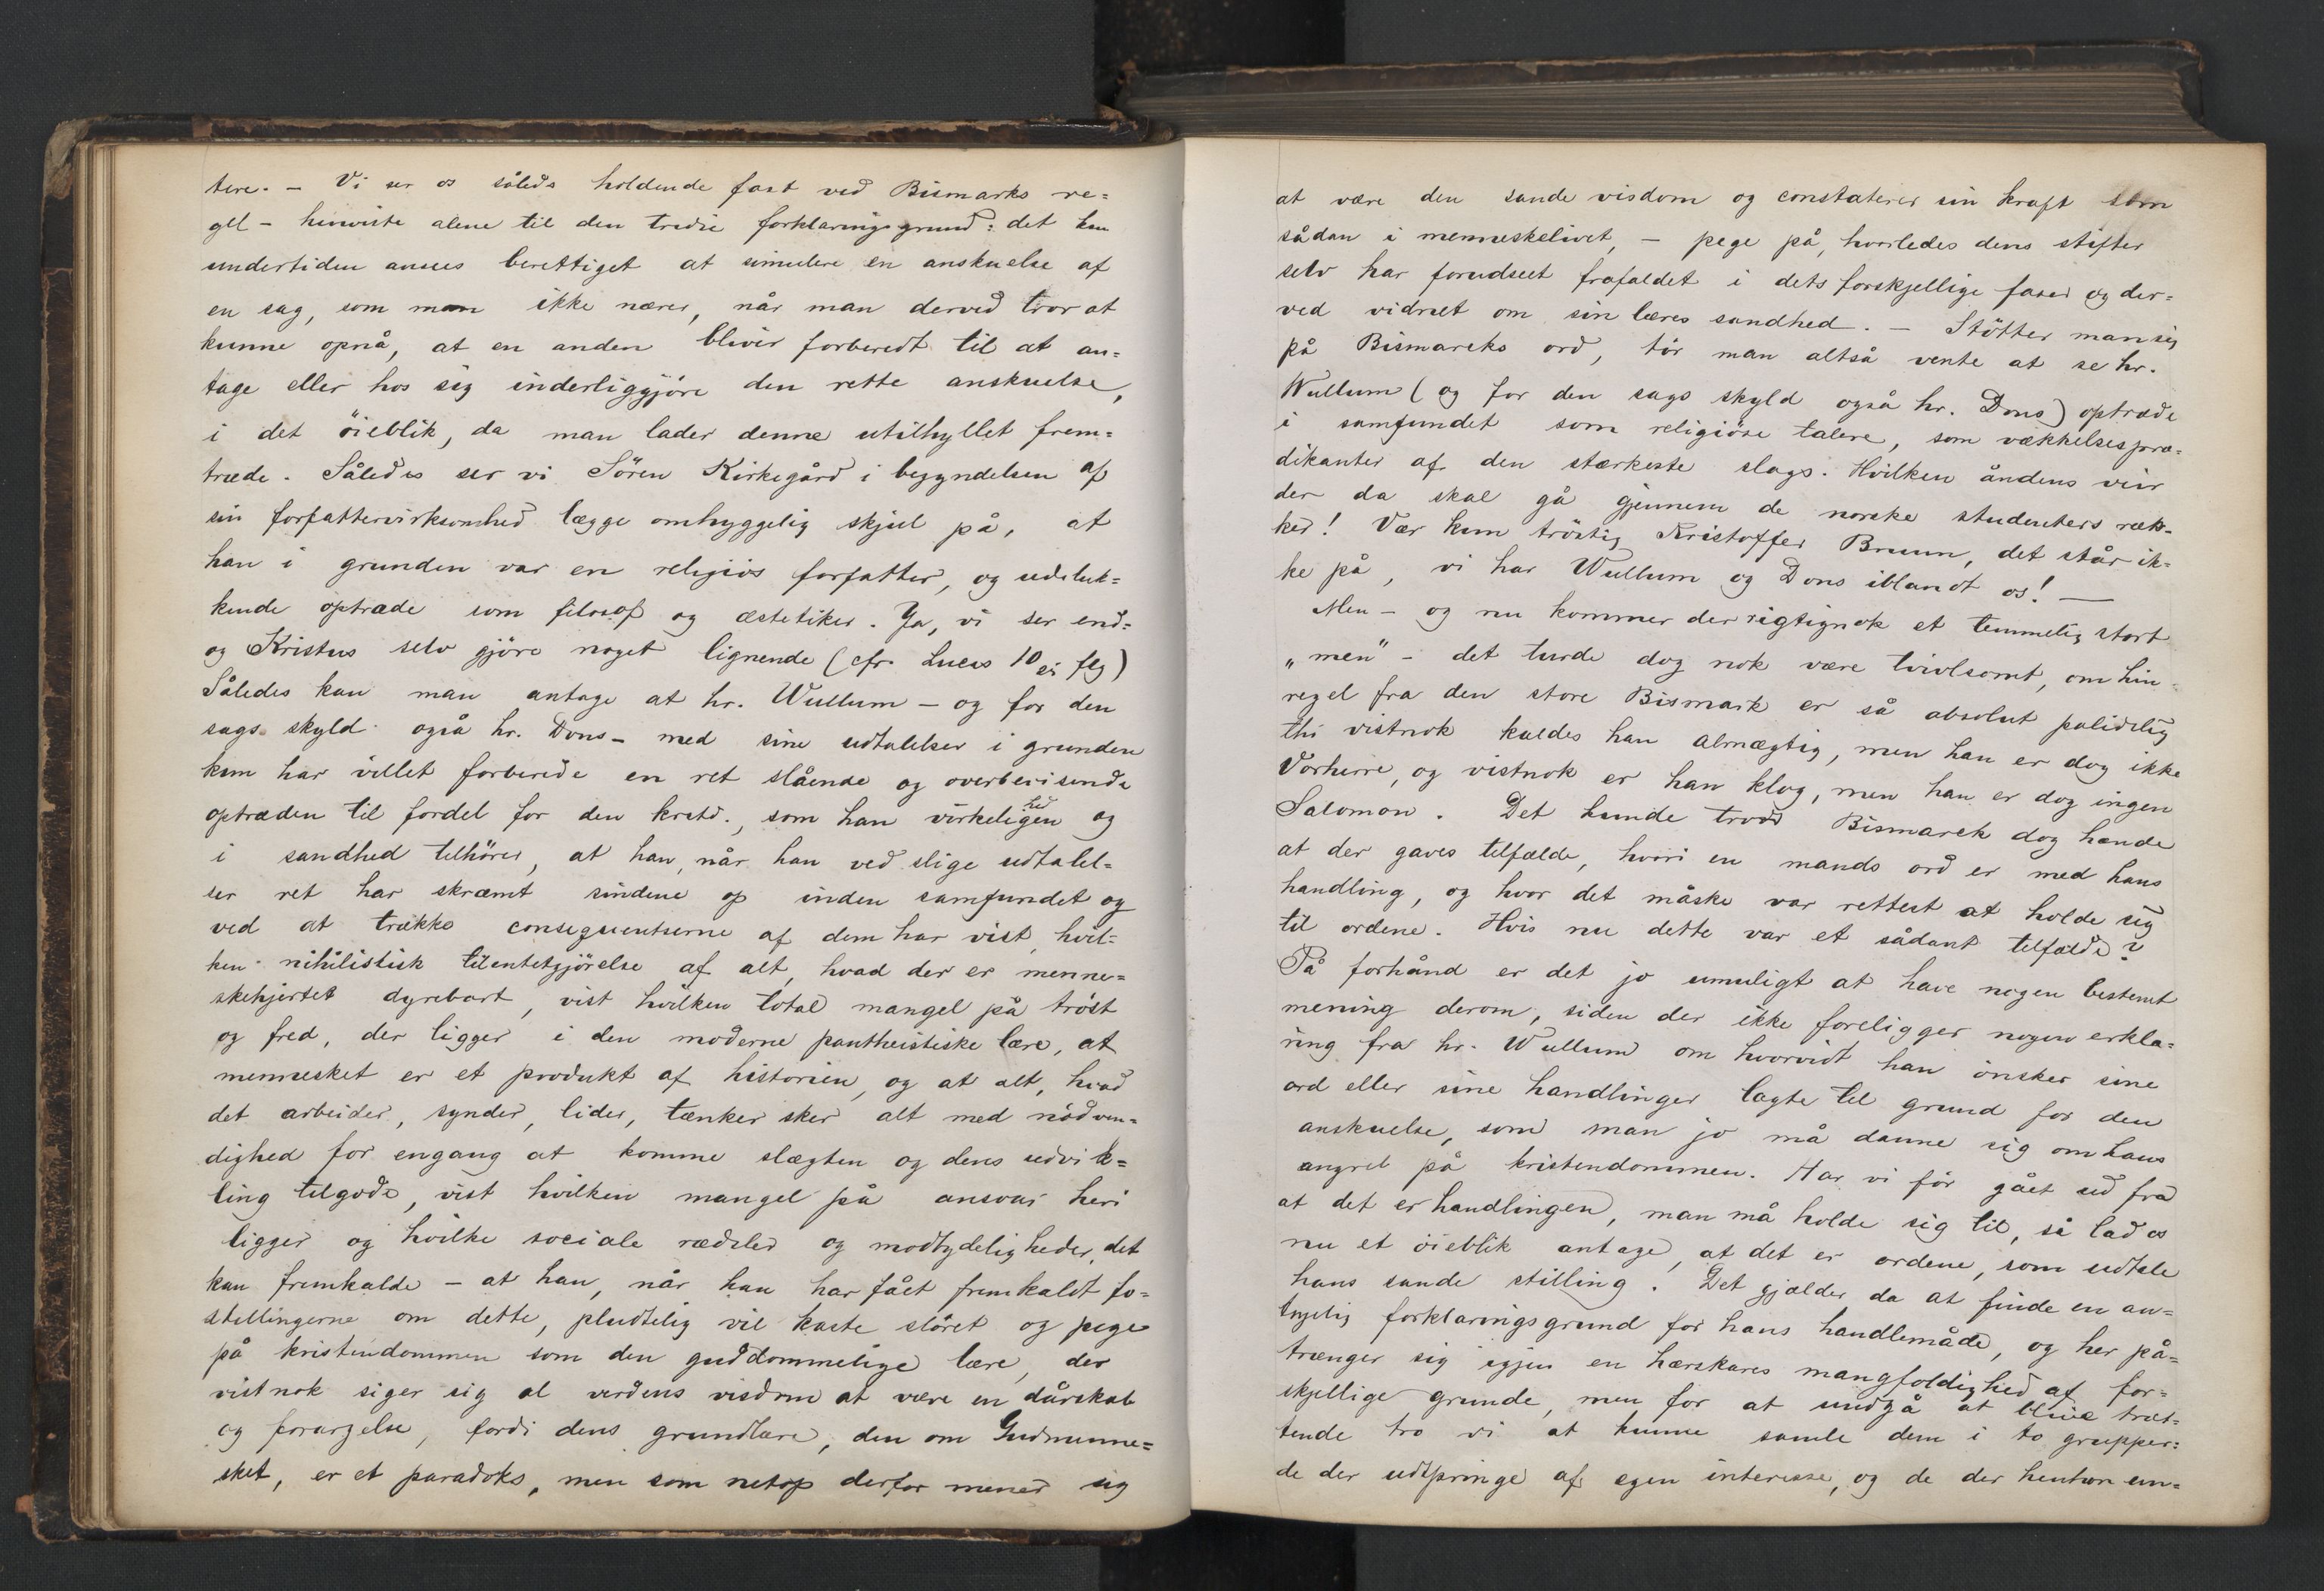 tere. – Vi ser os således holdende fast ved Bismarks re=
gel – henviste alene til den tredie forklaringsgrund: det kan
undertiden ansees berettiget at simulere en anskuelse af
en sag, som man ikke nærer, når man derved tror at
kunne opnå, at en anden bliver forberedt til at an=
tage eller hos sig inderliggjöre den rette anskuelse,
i det öieblik, da man lader denne utilhyllet frem=
træde. Således ser vi Sören Kirkegård i begyndelsen af
sin forfattervirksomhed lægge omhyggelig skjul på, at
han i grunden var en religiös forfatter, og udeluk=
kende optræde som filosof og æstetiker. Ja, vi ser end=
og Kristus selv gjöre noget lignende (cfr. Lucas 10 flg)
Således kan man antage at hr. Wullum – og for den
sags skyld også hr. Dons – med sine udtalelser i grunden
kun har villet forberede en ret slående og overbevisende
optræden til fordel for den kristd., som han virkeligen og
i sandhed tilhörer, at han, når han ved slige udtalel=
ser ret har skræmt sindene op inden samfundet og
ved at trække consequentserne af dem har vist, hvil=
ken nihilistisk tilintetgjörelse af alt, hvad der er menne=
skehjertet dyrebart, vist hvilken total mangel på tröst
og fred, der ligger i den moderne pantheistiske lære, at
mennesket er et produkt af historien, og at alt, hvad
det arbeider, synder, lider, tænker sker alt med nödven=
dighed for engang at komme slægten og dens udvik=
ling tilgode, vist hvilken mangel på ansvar heri
ligger og hvilke sociale rædsler og modbydeligheder, det
kan fremkalde – at han, når han har fået fremkaldt fo=
stillingerne om dette, pludselig vil kaste slöret og pege
på kristendommen som den guddommelige lære, der
vistnok siger sig al verdens visdom at være en dårskab
og forargelse, fordi dens grundlære, den om Gudmenne=
sket, er et paradoks, men som netop derfor mener sig
at være den sande visdom og constaterer sin kraft som
sådan i menneskelivet, – pege på, hvorledes dens stifter
selv har forudseet frafaldet i dets forskjellige faser og der=
ved vidnet om sin læres sandhed. – Stötter man sig
på Bismarcks ord, tör man altså vente at se hr.
Wullum (og for den sags skyld også hr. Dons) optræde
i samfundet som religiöse talere, som vækkelsespræ=
dikanter af den stærkeste slags. Hvilken åndens veir
der da skal gå gjennem de norske studenters ræk=
ker! Vær kun tröstig Kristoffer Bruun, det står ik=
ke på, vi har Wullum og Dons iblandt os! –
Men – og nu kommer der rigtignok et temmelig stort
„men" – det turde dog nok være tvivlsomt, om hin
regel fra den store Bismark er så absolut pålidelig
thi vistnok kaldes han almægtig, men han er dog ikke
Vorherre, og vistnok er han klog, men han er dog ingen
Salomon. Det kunde trods Bismarck dog hænde
at der gaves tilfælde, hvori en mands ord er med hans
handling, og hvor det måske var rettest at holde sig
til ordene. Hvis nu dette var et sådant tilfælde?
På forhånd er det jo umuligt at have nogen bestemt
mening derom, siden der ikke foreligger nogen erklæ=
ring fra hr. Wullum om hvorvidt han önsker sine
ord eller sine handlinger lagte til grund for den
anskuelse, som man jo må danne sig om hans
angreb på kristendommen. Har vi för gået ud fra
at det er handlingen, man må holde sig til, så lad os
nu et öieblik antage, at det er ordene, som udtale
hans sande stilling. Det gjælder da at finde en an=
tagelig forklaringsgrund for hans handlemåde, og her på=
trænger sig igjen en hærskares mangfoldighed af for=
skjellige grunde, men for at undgå at blive træt=
tende tro vi at kunne samle dem i to grupper:
de der udspringe af egen interesse, og de der